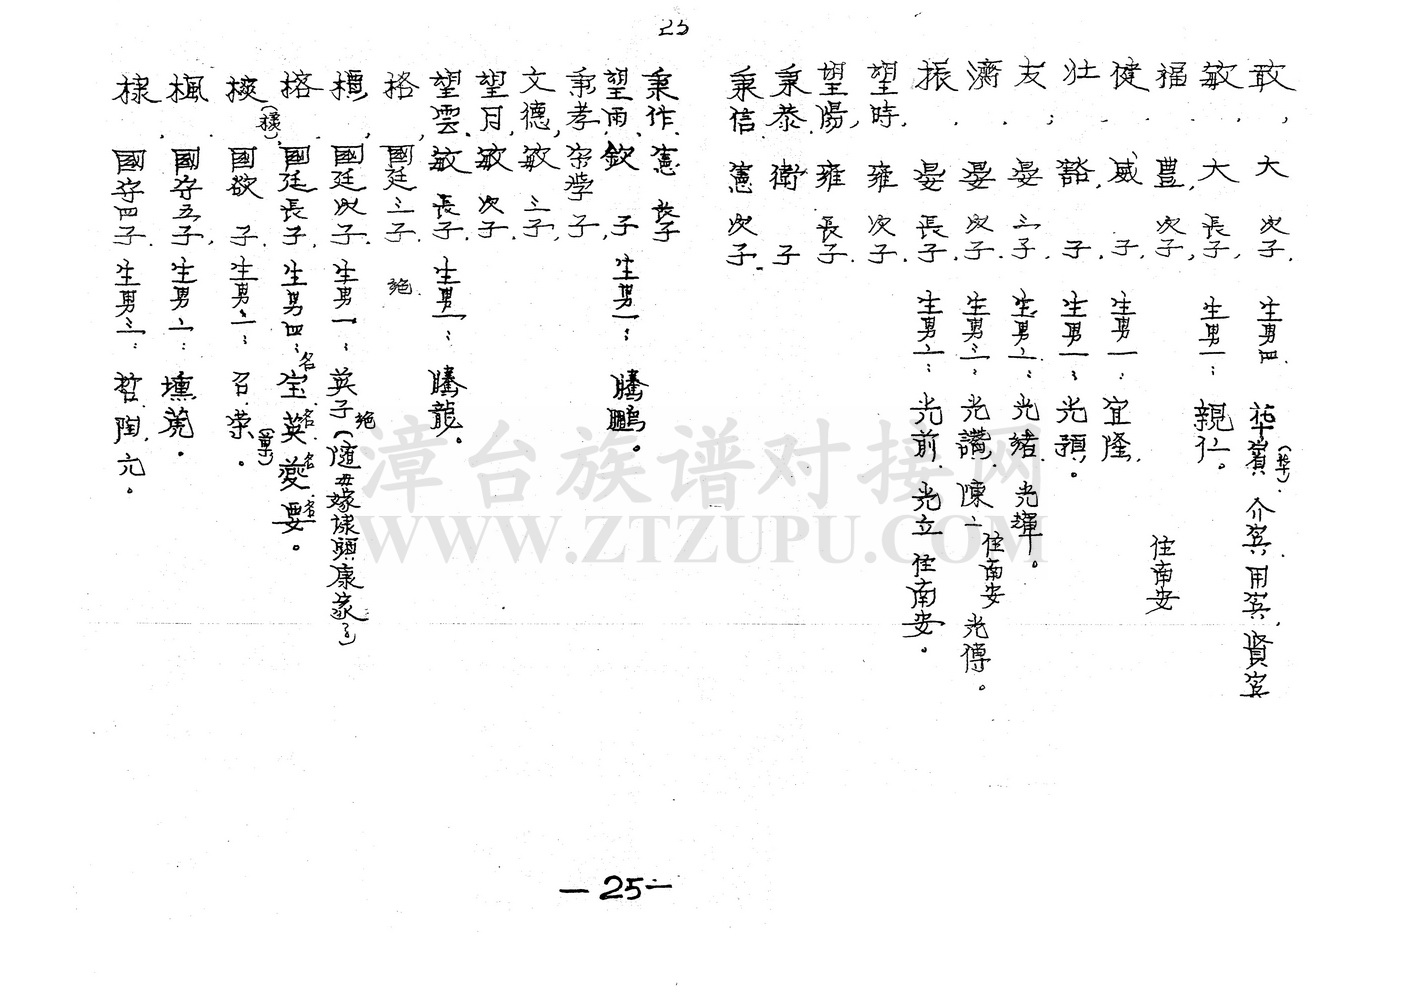 25
敢，大次子．生男四．華賓(华)．介賓．用賓．賢賓
敏，大長子，生男一：親仁。
福，豐次子．住南安
健，威子，生男一：宜隆
壯，豁．子．生男一：光預。
友，晏三子，生男二：光緒．光輝。
濟，晏次子．生男三：光讚．陳二住南安 光傳。
振，晏長子．生男二：光前．光立 住南安。
望時，雍次子．
望陽，雍長子．
秉恭．衛子
秉信．憲次子．
秉作．憲長子
望雨．欽子 生男一：騰鵬。
秉孝．宗學子，
文德，敏三子．
望月，敏次子．
望雲．敏長子．生男一：騰龍。
格，國廷三子．絶
標，國廷次子．生男一：英子绝(随母嫁隸頭康家了)
榕，國廷長子．生男四：宝名英名愛名要名。
核(橫)，國欲子．生男二：召．業(章)。
楓，國存五子，生男二：壎．箎。
棣，國存四子．生男三：哲．陶．亢。
漳台族谱对接网
WWW.ZTZUPU.COM
—25—